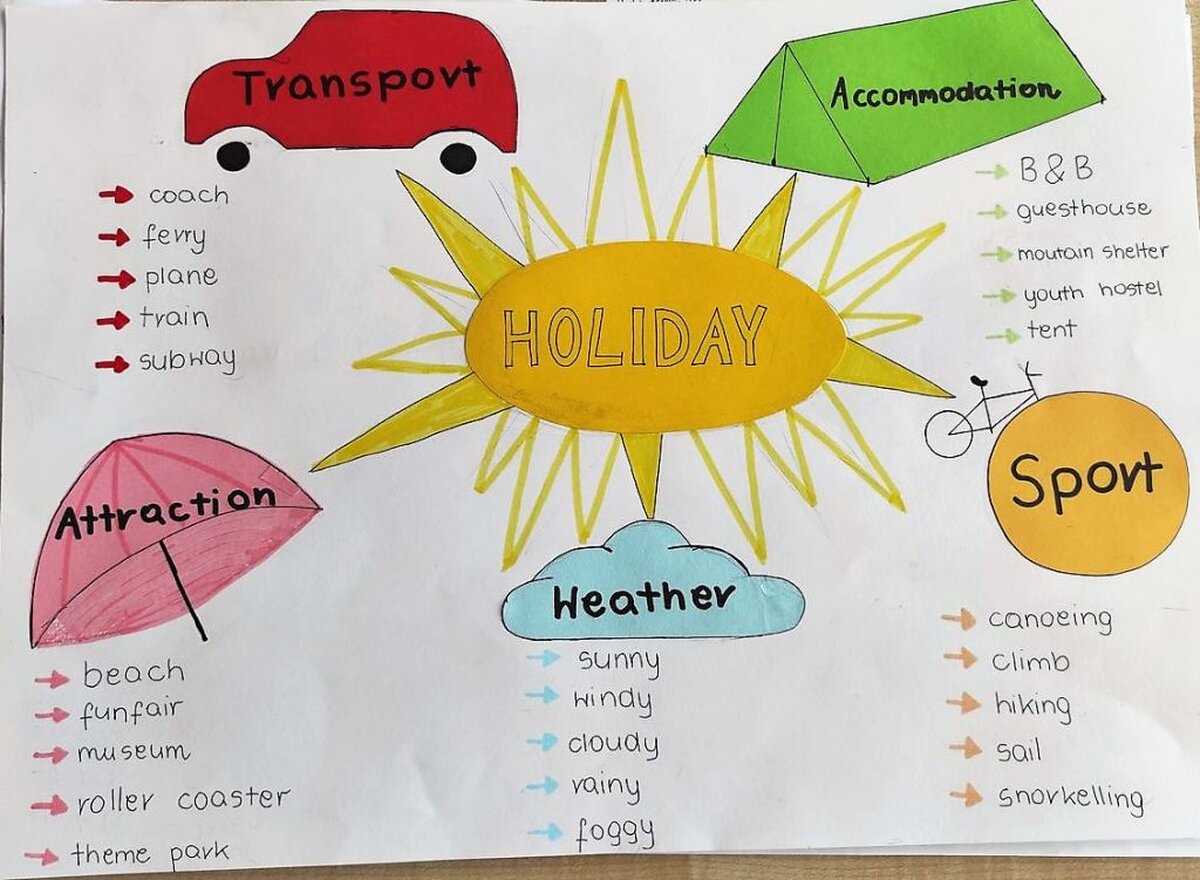 Transport
coach
ferry
plane
train
subway
Accommodation
B&B
guesthouse
moutain shelter
youth hostel
tent
HOLIDAY
Attraction
beach
funfair
museum
roller coaster
theme park
Weather
sunny
windy
cloudy
rainy
foggy
Sport
canoeing
climb
hiking
sail
snorkelling